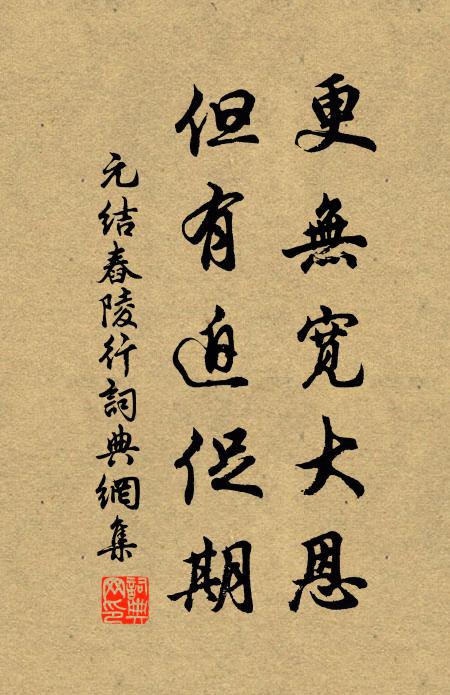 更無寬大恩
但有迫促期
元結舂陵行詞典網集
詞典
網印